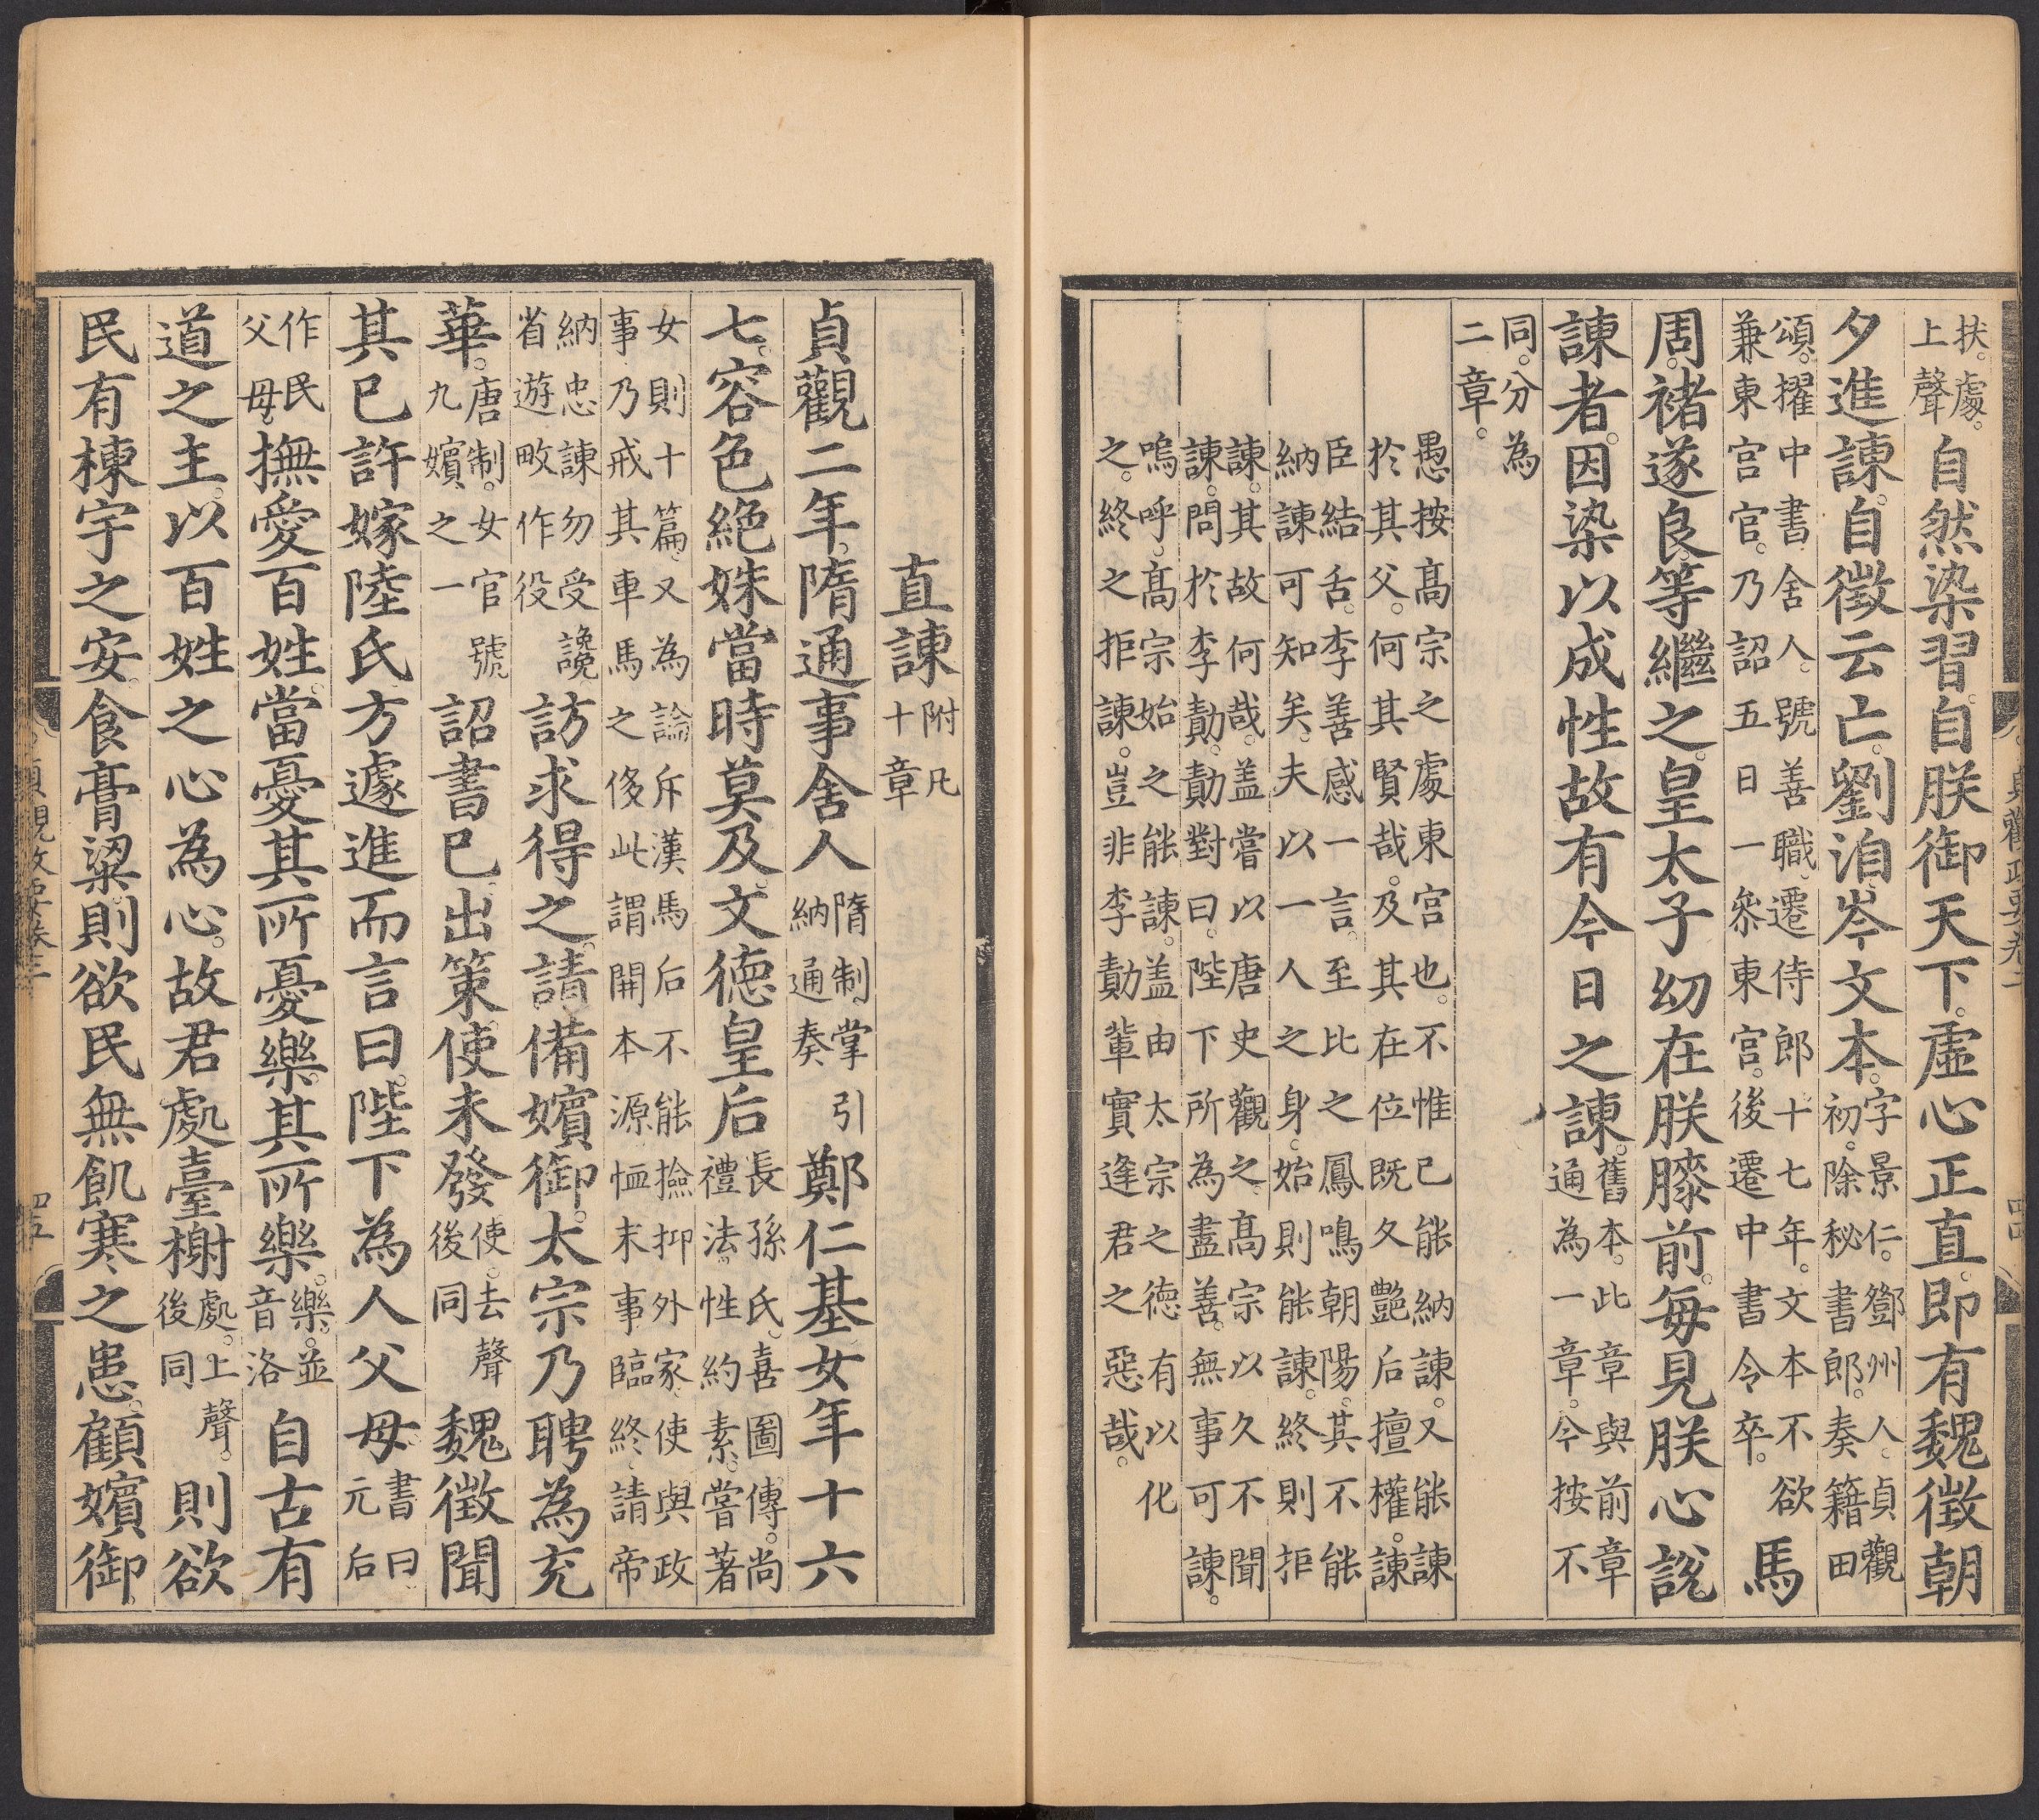 扶。處。上聲自然染習。自朕御天下。虛心正直。即有魏徵朝
夕進諫。自徵云亡。劉洎岑文本。字景仁。鄧州人。貞觀初。除秘書郎。奏籍田
頌。擢中書舍人。號善職。遷侍郎。十七年。文本不欲兼東宮官。乃詔五日一叅東宮。後遷中書令卒。馬
周。褚遂良等繼之。皇太子幼在朕膝前。每見朕心說
諫者。因染以成性故有今日之諫。舊本。此章與前章通為一章。今按不
同。分為二章。
愚按高宗之處東宮也。不惟已能納諫。又能諫
於其父。何其賢哉。及其在位既久艷后擅權。諫
臣結舌。李善感一言。至比之鳳鳴朝陽。其不能
納諫可知矣。夫以一人之身。始則能諫。終則拒
諫。其故何哉。盖嘗以唐史觀之。高宗以久不聞
諫。問於李勣。勣對曰。陛下所為盡善。無事可諫。
嗚呼。高宗始之能諫。盖由太宗之德有以化
之。終之拒諫。豈非李勣輩實逢君之惡哉。
直諫附凡十章
貞觀二年。隋通事舍人隋制掌引納通奏鄭仁基女年十六
七。容色絕姝。當時莫及。文德皇后長孫氏。喜圖傳。尚禮法。性約素。嘗著
女則十篇。又為論斥漢馬后不能撿抑外家。使與政事乃戒其車馬之侈此謂開本源恤末事臨終。請帝
納忠諫勿受讒省遊畋作役訪求得之。請備嬪御。太宗乃聘為充
華。唐制。女官號九嬪之一詔書已出策使未發使。去聲後同魏徵聞
其已許嫁陸氏方遽進而言曰。陛下為人父母書曰元后
作民父母。撫愛百姓。當憂其所憂樂其所樂。樂。並音洛自古有
道之主。以百姓之心為心。故君處臺榭處。上聲。後同則欲
民有棟宇之安。食膏粱。則欲民無飢寒之患。顧嬪御。